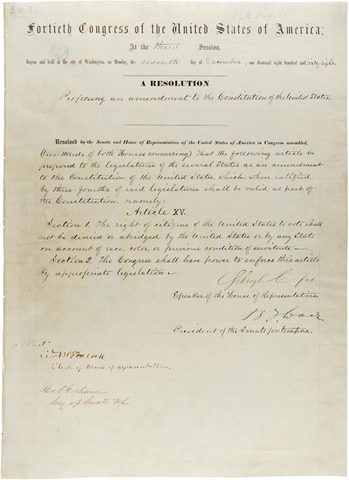 Fortieth Congress of the United States of America;
At the third Session,
Begun and held at the city of Washington, on Monday, the seventh day of December, one thousand eight hundred and sixty-eight.
A RESOLUTION
Proposing an amendment to the Constitution of the United States.
Resolved by the Senate and House of Representatives of the United States of America in Congress assembled,
(two-thirds of both Houses concurring) That the following article be
proposed to the legislatures of the several States as an amendment
to the Constitution of the United States which, when ratified
by three-fourths of said legislatures shall be valid as part of
the Constitution, namely:
Article XV.
Section 1. The right of citizens of the United States to vote shall
not be denied or abridged by the United States or by any State
on account of race, color, or previous condition of servitude—
Section 2. The Congress shall have power to enforce this article
by appropriate legislation—
Schuyler Colfax
Speaker of the House of Representatives.
B F Wade
President of the Senate pro tempore.
Attest
Clerk of House of Representatives
Geo C Gorham
Secy of Senate U.S.